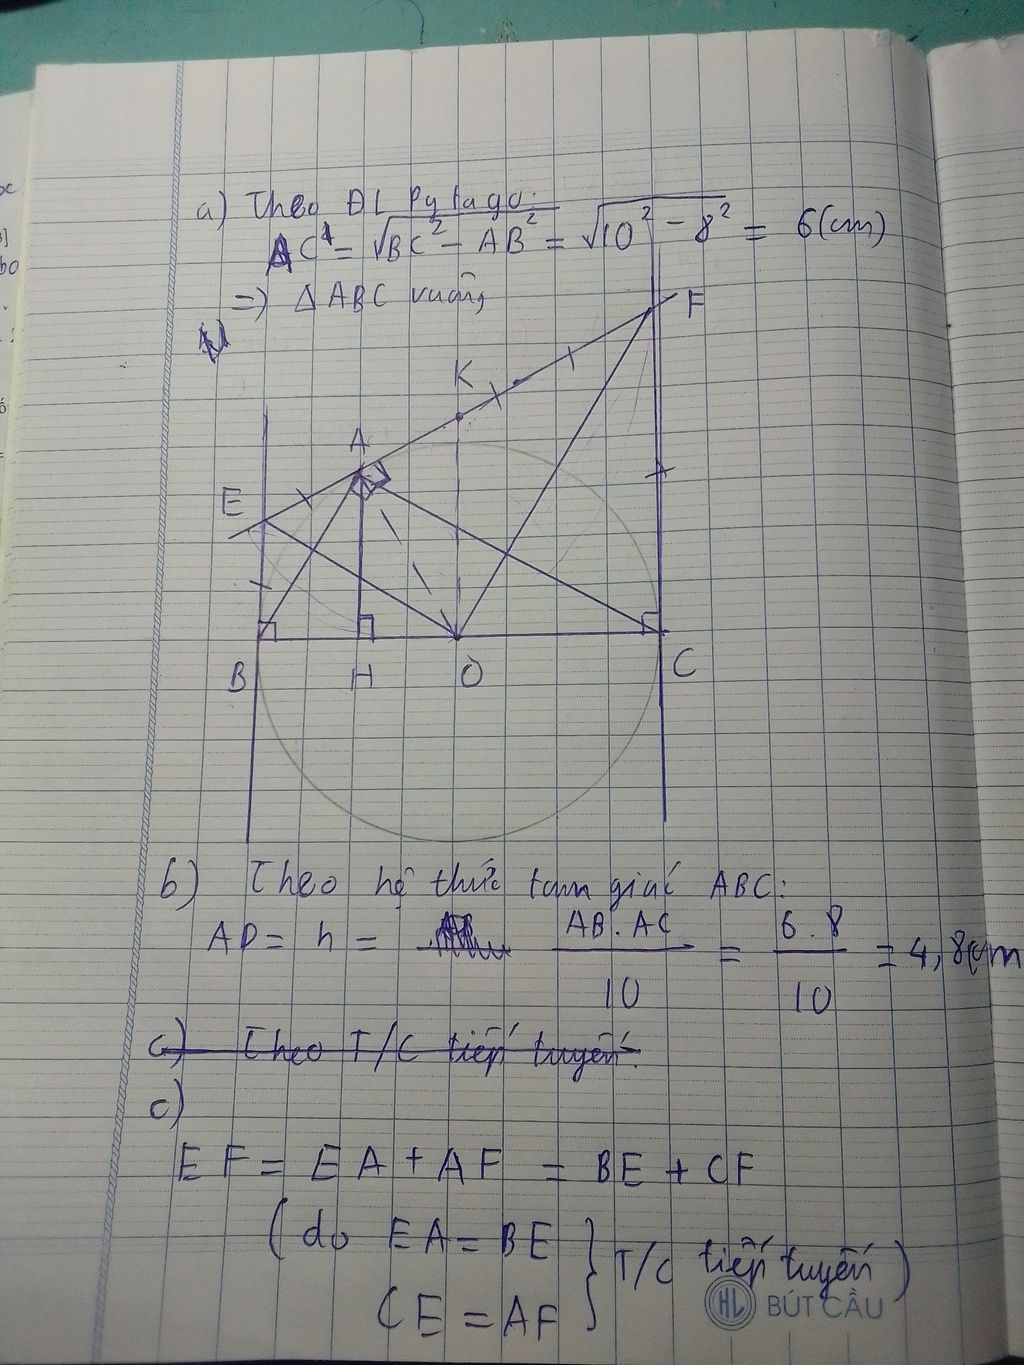 a) Theo ĐL Pytago:
AC = √BC² - AB² = √10² - 8² = 6(cm)
=> Δ ABC vuông
F
K
A
E
B H O C
b) Theo hệ thức tam giác ABC:
AD = h = AB.AC / 10 = 6.8 / 10 = 4,8(cm
c) Theo T/C tiếp tuyến:
c)
EF = EA + AF = BE + CF
(do EA = BE } T/C tiếp tuyến)
CE = AF
HL BÚT CẦU